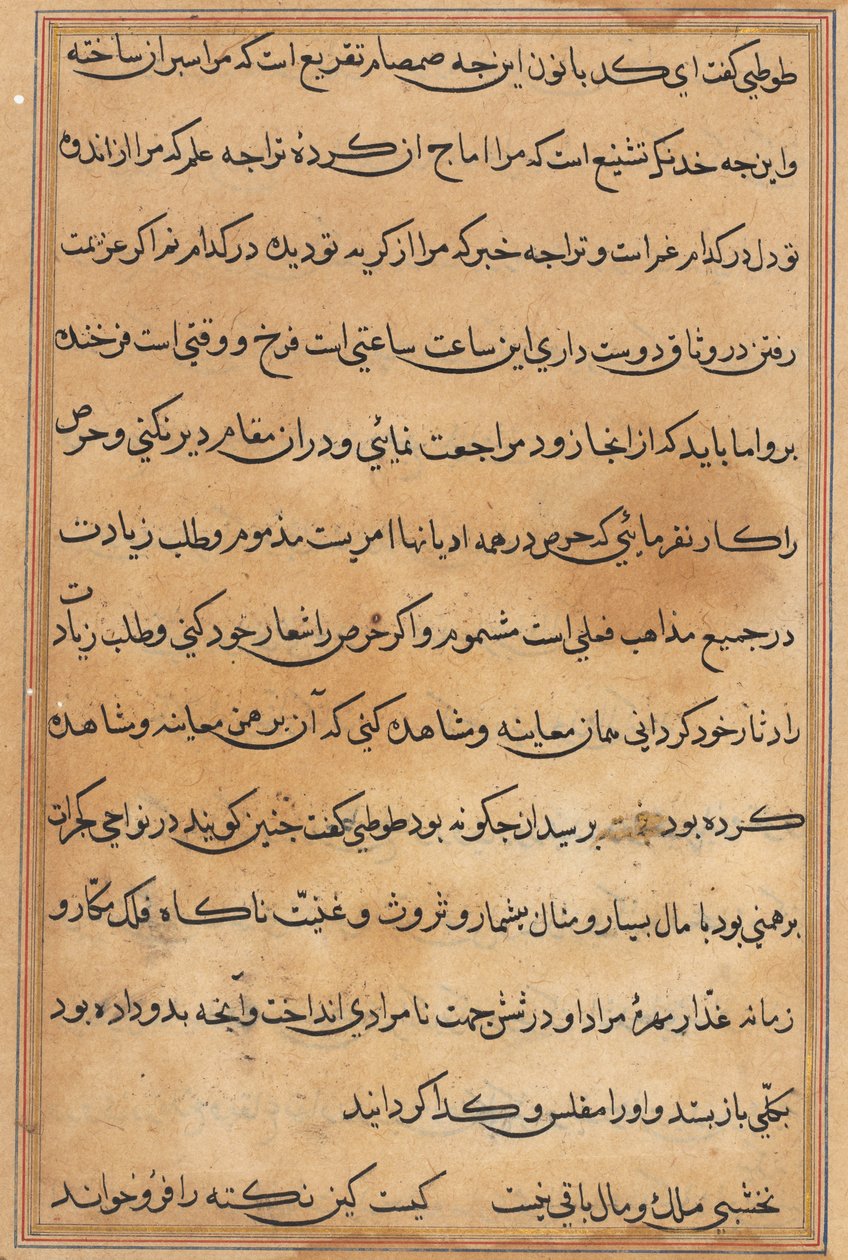 طوطي كفت اي كد بانون اين جه صمصام تقريع است كه مرا سبر ان ساخته
واين جه خدنك تشنيع است كه مرا اماج ان كردۀ ترا جه علم كه مرا از اندوه
تو دل در كدام غم است و ترا جه خبر كه مرا از كريه تو ديده در كدام نم اكر عزيمت
رفتن در وثاق دوست داري اين ساعت ساعتي است فرخ و وقتي است فرخنده
برو اما بايد كه از انجا زود مراجعت نمائي و دران مقام دير نكني و حرص
را كار نفرمائي كه حرص در همه اديانها امريست مذموم و طلب زيادت
در جميع مذاهب فعلي است مشموم و اكر حرص را شعار خود كني و طلب زيادت
را دثار خود كرداني همان معاينه و مشاهده كني كه آن برهمن معاينه و مشاهده
كرده بود برسيد ان جكونه بود طوطي كفت جنين كويند در نواحي كجرات
برهمني بود با مال بسيار و منال بيشمار و ثروت و غنيّت ناكاه فلك مكّار و
زمانه غدّار مهرۀ مراد او در شش جهت نامرادي انداخت و آنجه بدو داده بود
بكلّي باز ستد و او را مفلس و كدا كردانيد
نخشبي ملك و مال باقي نيست كيست كين نكته را فرو خواند